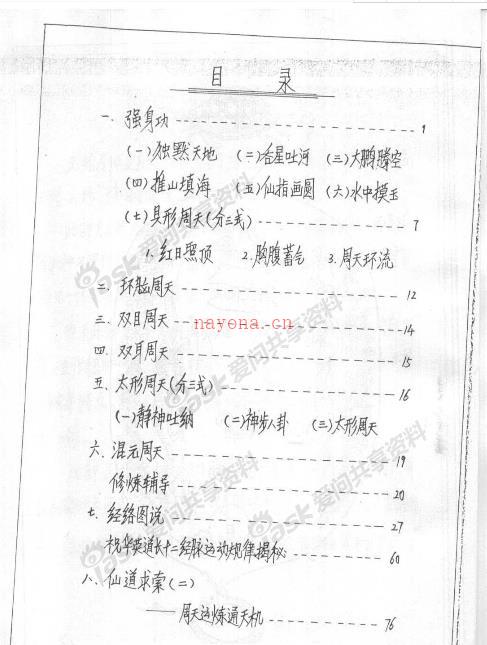 目 录
一. 强身功 1
(一)独默天地 (二)吞星吐河 (三)大鹏腾空
(四)推山填海 (五)仙指画圆 (六)水中摸玉
(七)具形周天(分三式) 7
1. 红日照顶 2. 胸腹蓄气 3. 周天环流
二. 环脑周天 12
三. 双目周天 14
nayona.cn
四. 双耳周天 15
五. 太形周天(分三式) 16
(一)静神吐纳 (二)神步八卦 (三)太形周天
六. 混元周天 19
修炼辅导 20
七. 经络图说 27
祝华英道长十二经脉运动规律揭秘 60
八. 仙道求索(二)
—— 周天运炼通天机 76
ask爱问共享资料
ask爱问共享资料
ask爱问共享资料
ask爱问共享资料